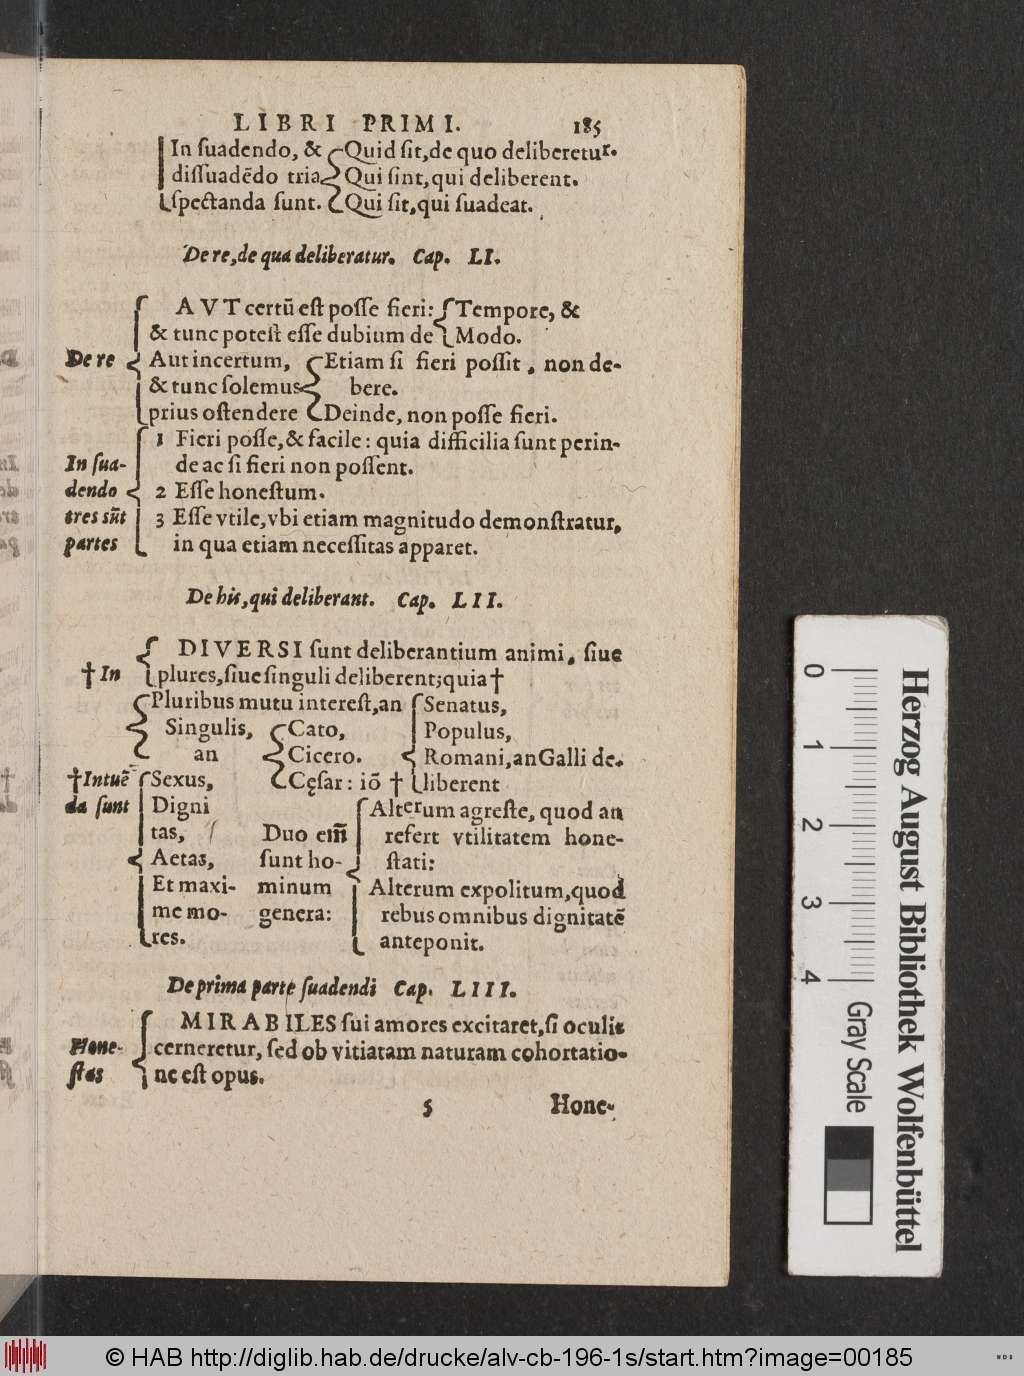 LIBRI PRIMI. 185
In suadendo, & Quid sit, de quo deliberetur.
dissuadēdo tria Qui sint, qui deliberent.
spectanda sunt. Qui sit, qui suadeat.
De re, de qua deliberatur. Cap. LI.
AVT certū est posse fieri: Tempore, &
& tunc potest esse dubium de Modo.
De re Aut incertum, Etiam si fieri possit, non de-
& tunc solemus bere.
prius ostendere Deinde, non posse fieri.
1 Fieri posse, & facile: quia difficilia sunt perin-
In sua- de ac si fieri non possent.
dendo 2 Esse honestum.
tres sūt 3 Esse vtile, vbi etiam magnitudo demonstratur,
partes in qua etiam necessitas apparet.
De his, qui deliberant. Cap. LII.
DIVERSI sunt deliberantium animi, siue
† In plures, siue singuli deliberent; quia †
Pluribus mutu interest, an Senatus,
Singulis, Cato, Populus,
an Cicero. Romani, an Galli de-
† Intuē Sexus, Cęsar: iō † liberent
da sunt Digni Alterum agreste, quod an
tas, Duo em̄ refert vtilitatem hone-
Aetas, sunt ho- stati:
Et maxi- minum Alterum expolitum, quod
me mo- genera: rebus omnibus dignitatē
res. anteponit.
De prima parte suadendi Cap. LIII.
MIRABILES sui amores excitaret, si oculis
Hone- cerneretur, sed ob vitiatam naturam cohortatio-
stas ne est opus.
5 Hone-
Herzog August Bibliothek Wolfenbüttel
0 1 2 3 4
Gray Scale
© HAB http://diglib.hab.de/drucke/alv-cb-196-1s/start.htm?image=00185